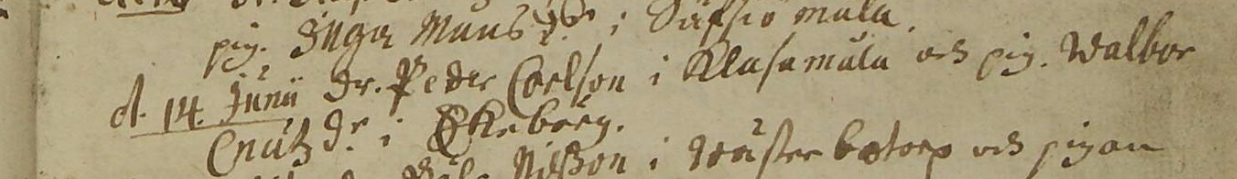 pig. Inga Månsdr. i Säfsiö måla.
d. 14. Junii dr. Peder Carlson i Klasamåla och pig. Walbor
Cnutzdr. i Ekeberg.
Nilsson i och pigan